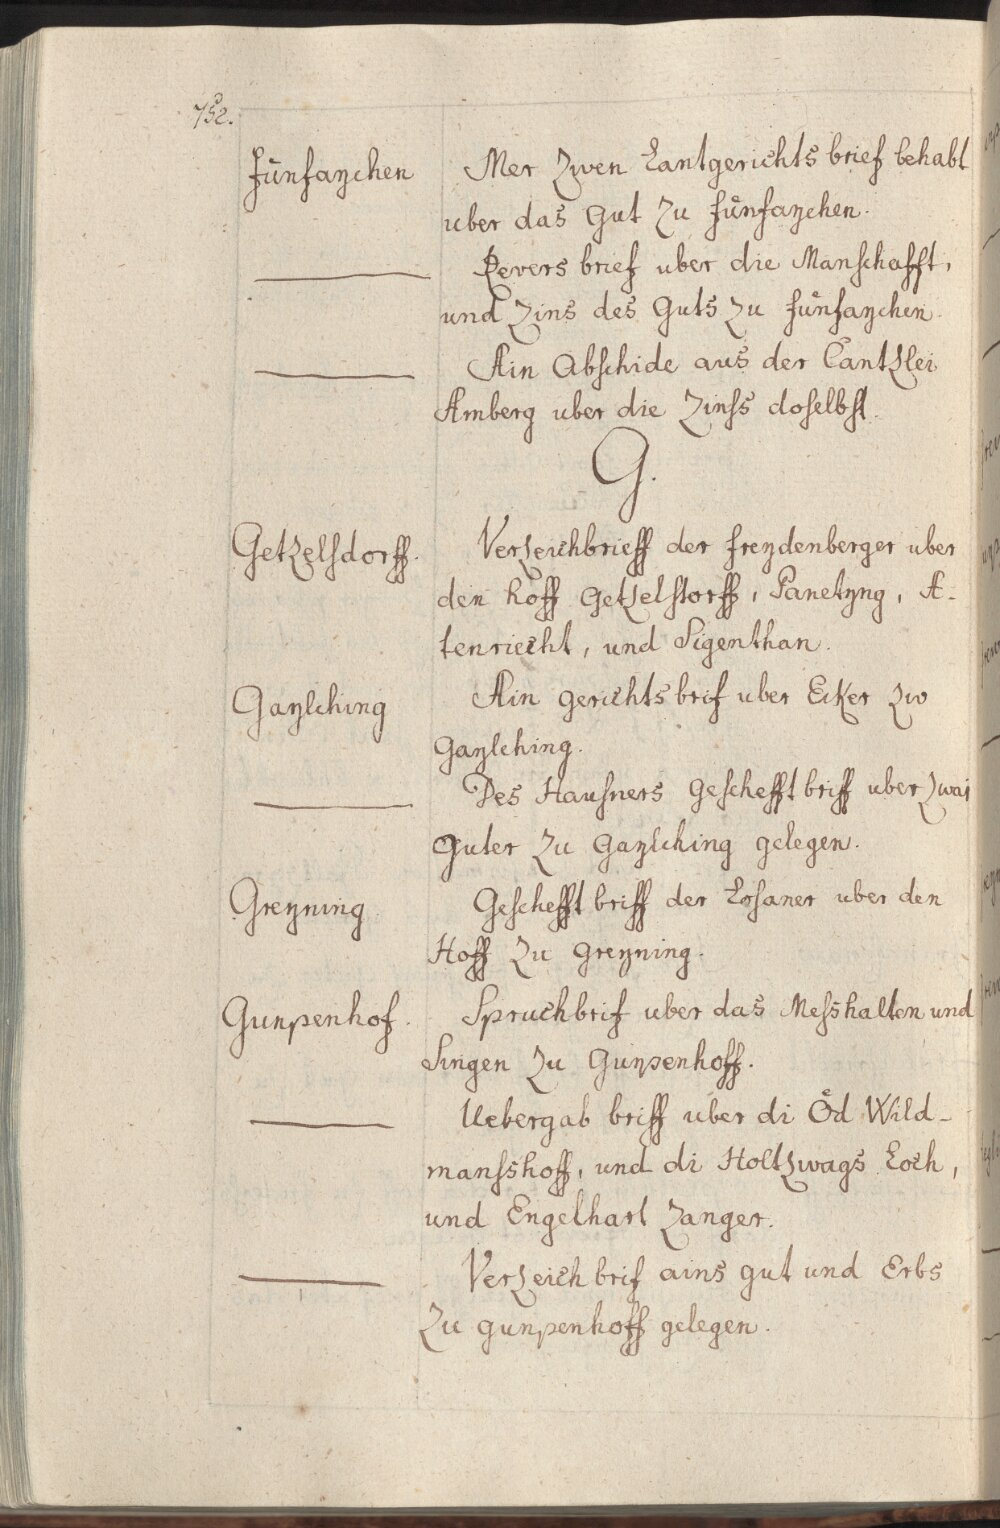 752.
Fünfaychen Mer Zwen Lantgerichts brief behabt
uber das Gut Zu Fünfaychen.
Revers brief uber die Manschafft,
und Zins des Guts Zu Fünfaychen.
Ain Abschide aus der Cantzlei
Amberg uber die Zinss doselbst.
G.
Getzelsdorff. Verzeichbrieff der Freydenberger uber
den hoff Getzelstorff, Panetyng, A-
tenriecht, und Sigenthan.
Gaylching Ain gerichts brif uber Ecker Zw
Gaylching.
Des Hausners Geschefft briff uber Zwai
Guter Zu Gaylching gelegen.
Greyning Geschefft briff der Losaner uber den
Hoff Zu Greyning.
Gunpenhof. Spruchbrif uber das Messhalten und
Singen Zu Gunpenhoff.
Uebergab briff uber di Öd Wild-
manshoff, und di Holtzwags Loch,
und Engelhart Zanger.
Verzeich brif ains gut und Erbs
Zu gunpenhoff gelegen.